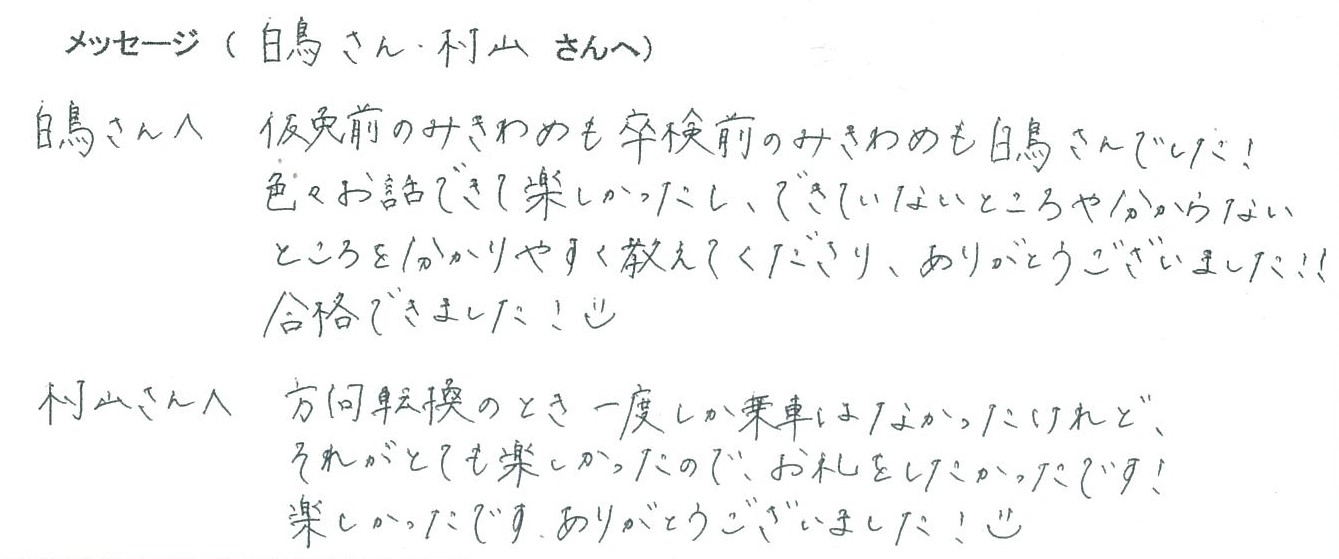 メッセージ（白鳥さん・村山 さんへ）
白鳥さんへ 仮免前のみきわめも卒検前のみきわめも白鳥さんでした！
色々お話できて楽しかったし、できていないところや分からない
ところを分かりやすく教えてくださり、ありがとうございました!!
合格できました！
村山さんへ 方向転換のとき一度しか乗車はなかったけれど、
それがとても楽しかったので、お礼をしたかったです！
楽しかったです。ありがとうございました！